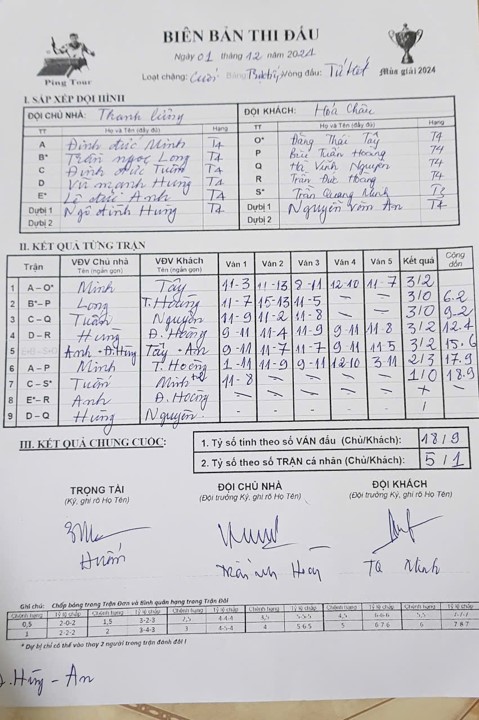 BIÊN BẢN THI ĐẤU
Ngày 01 tháng 12 năm 2024
Loạt chặng: Cuối Bảng: Vòng đấu: Tứ kết
Ping Tour
Mùa giải 2024
I. SẮP XẾP ĐỘI HÌNH
ĐỘI CHỦ NHÀ: Thanh Cường ĐỘI KHÁCH: Hoà Châu
TT Họ và Tên (đầy đủ) Hạng TT Họ và Tên (đầy đủ) Hạng
A Đinh đức Minh T4 O* Đặng Thái Tây T4
B* Trần ngọc Long T4 P Bùi Tuấn Hoàng T4
C Đinh đức Tuấn T4 Q Hà Vĩnh Nguyên T4
D Vũ mạnh Hùng T4 R Trần Đức Hoàng T4
E* Lê đức Anh T4 S* Trần Quang Minh T3
Dự bị 1 Ngô đình Hùng T4 Dự bị 1 Nguyễn Văn An T4
Dự bị 2 Dự bị 2
II. KẾT QUẢ TỪNG TRẬN
Trận VĐV Chủ nhà VĐV Khách Ván 1 Ván 2 Ván 3 Ván 4 Ván 5 Kết quả Cộng dồn
Tên (ngắn gọn) Tên (ngắn gọn)
1 A – O* Minh Tây 11-3 11-13 8-11 12-10 11-7 3/2
2 B* – P Long T. Hoàng 11-7 15-13 11-5 – – 3/0 6-2
3 C – Q Tuấn Nguyên 11-9 11-2 11-8 – – 3/0 9-2
4 D – R Hùng Đ. Hoàng 9-11 11-4 11-9 9-11 11-8 3/2 12-4
5 Anh - Đ.Hùng Tây - An 9-11 11-7 11-7 9-11 11-5 3/2 15-6
6 A – P Minh T. Hoàng 1-11 11-9 9-11 12-10 3-11 2/3 17-9
7 C – S* Tuấn Minh 11-8 – – – – 1/0 18-9
8 E* – R Anh Đ. Hoàng - - - -
9 D – Q Hùng Nguyên - - - - -
III. KẾT QUẢ CHUNG CUỘC:
1. Tỷ số tính theo số VÁN đấu (Chủ/Khách): 18/9
2. Tỷ số theo số TRẬN cá nhân (Chủ/Khách): 5/1
TRỌNG TÀI ĐỘI CHỦ NHÀ ĐỘI KHÁCH
(Ký, ghi rõ Họ Tên) (Đội trưởng Ký, ghi rõ Họ Tên) (Đội trưởng Ký, ghi rõ Họ Tên)
Tạ Minh
Ghi chú: Chấp bóng trong Trận Đơn và Bình quân hạng trong Trận Đôi
Chênh hạng Tỷ lệ chấp Chênh hạng Tỷ lệ chấp Chênh hạng Tỷ lệ chấp Chênh hạng Tỷ lệ chấp Chênh hạng Tỷ lệ chấp Chênh hạng Tỷ lệ chấp
0,5 2-0-2 1,5 3-2-3 2,5 4-4-4 3,5 5-5-5 4,5 6-6-6 5,5 7-7-7
1 2-2-2 2 3-4-3 3 4-5-4 4 5-6-5 5 6-7-6 6 7-8-7
* Dự bị chỉ có thể vào thay 2 người trong trận đánh đôi !
Đ. Hùng - An